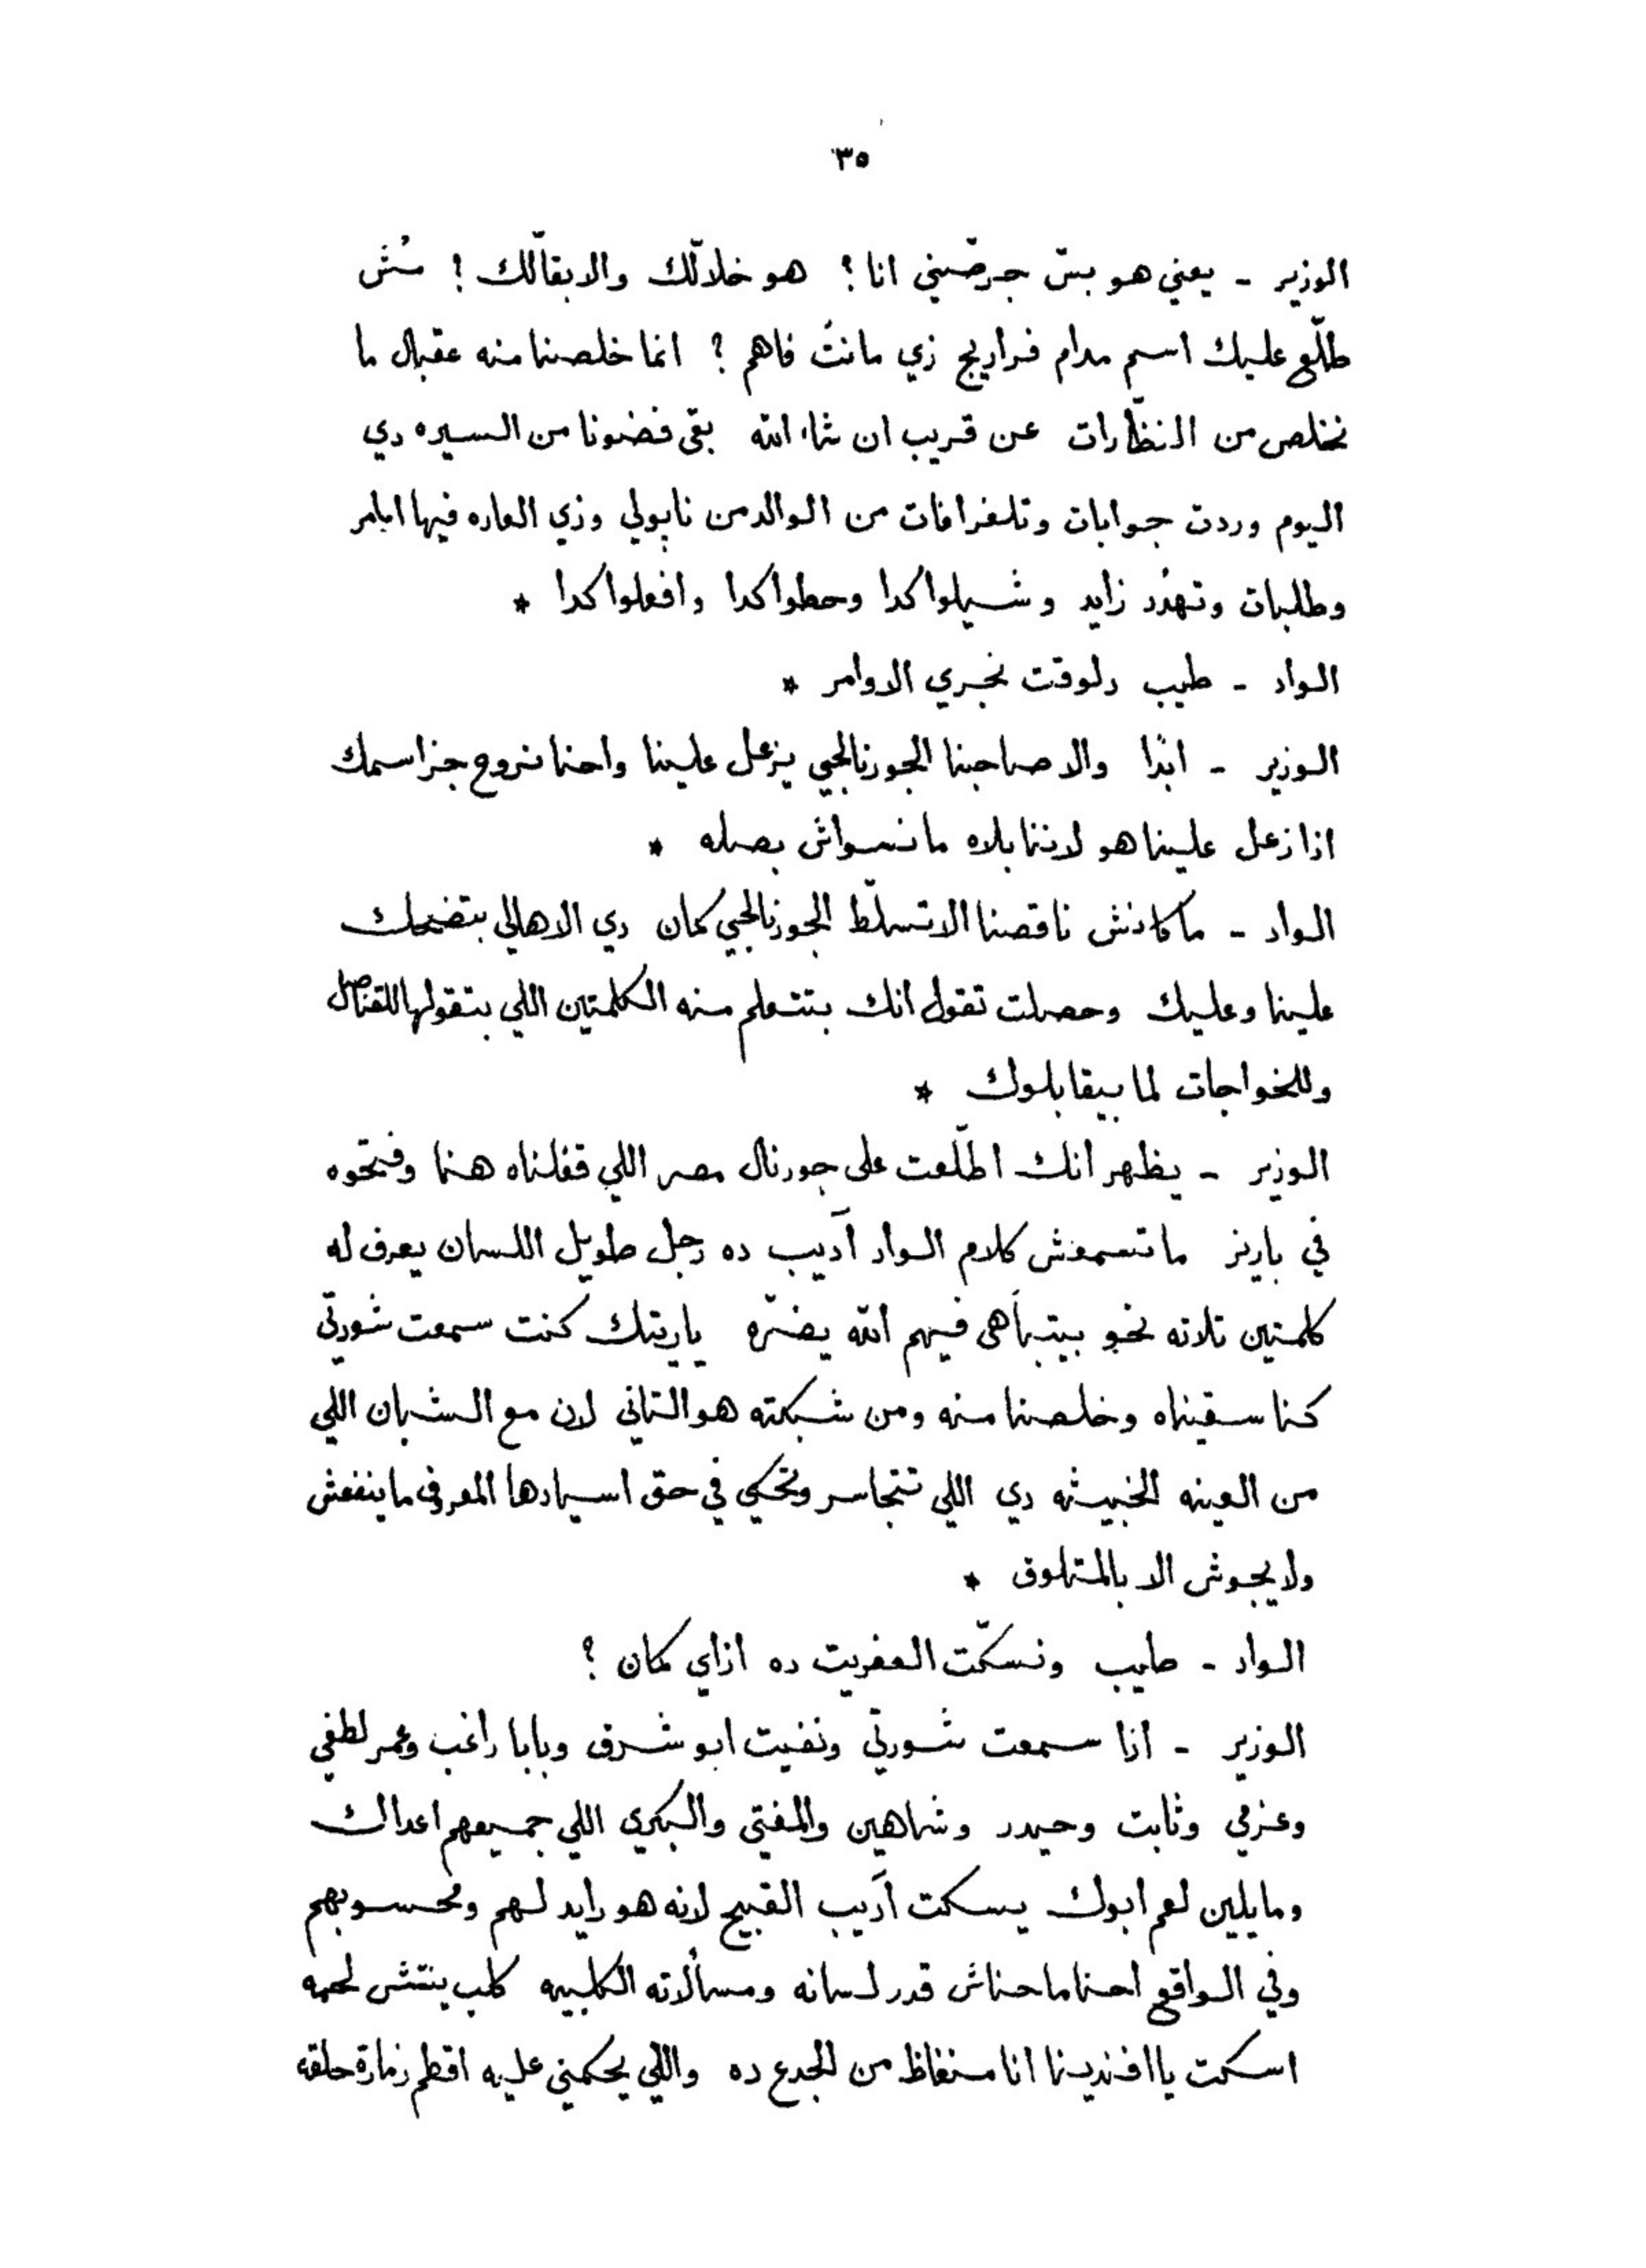 ٣٥
الوزير - يعني هو بسّ جرصّني انا؟ هو خلالّك والا بقالّك؟ مُش
طلّع عليك اسم مدام فراريج زي مانتَ فاهم؟ انما خلصنا منه عقبال ما
نخلص من النظّارات عن قريب ان شاء الله بقى فضونا من السيره دي
اليوم وردت جوابات وتلغرافات من الوالد من نابولي وزي العاده فيها اوامر
وطلبات وتهدُد زايد وشيلوا كدا وحطوا كدا وافعلوا كدا *
الواد - طيب دلوقت نجري الاوامر *
الوزير - ابدًا والا صاحبنا الجورنالجي يزعل علينا واحنا نروح جزا سمك
اذا زعل علينا هو لاننا بلاه مانسواش بصله *
الواد - ماكانش ناقصنا الا تسلّط الجورنالجي كمان دي الاهالي بتضحك
علينا وعليك وحصلت تقول انك بتتعلم منه الكلمتين اللي بتقولها للقناصل
وللخواجات لما بيقابلوك *
الوزير - يظهر انك اطّلعت على جورنال مصر اللي قفلناه هنا وفتحوه
في باريز ماتسمعش كلام الواد اَديب ده رجل طويل اللسان يعرف له
كلمتين تلاته نحو بيتباهى فيهم الله يضرّه ياريتك كنت سمعت شورتي
كنا سقيناه وخلصنا منه ومن شبكته هو التاني لان مع الشبان اللي
من العينه الخبيثه دي اللي تتجاسر وتحكي في حق اسيادها المعروف ماينفعش
ولا يجوش الا بالمتلوق *
الواد - طيب ونسكّت العفريت ده ازاي كمان؟
الوزير - اذا سمعت شورتي ونفيت ابو شرف وبابا راغب وعمر لطفي
وعزمي وثابت وحيدر وشاهين والمفتي والبكري اللي جميعهم اعداك
ومايلين لعم ابوك يسكت اَديب القبيح لانه هو رايد لهم ومحسوبهم
وفي الواقع احنا ماحناش قدر لسانه ومسألاته الكلبيه كلب ينتش لحمه
اسكت يا افندينا انا منغاظ من الجدع ده واللي يحكمني عليه اقطم زمارة حلقه